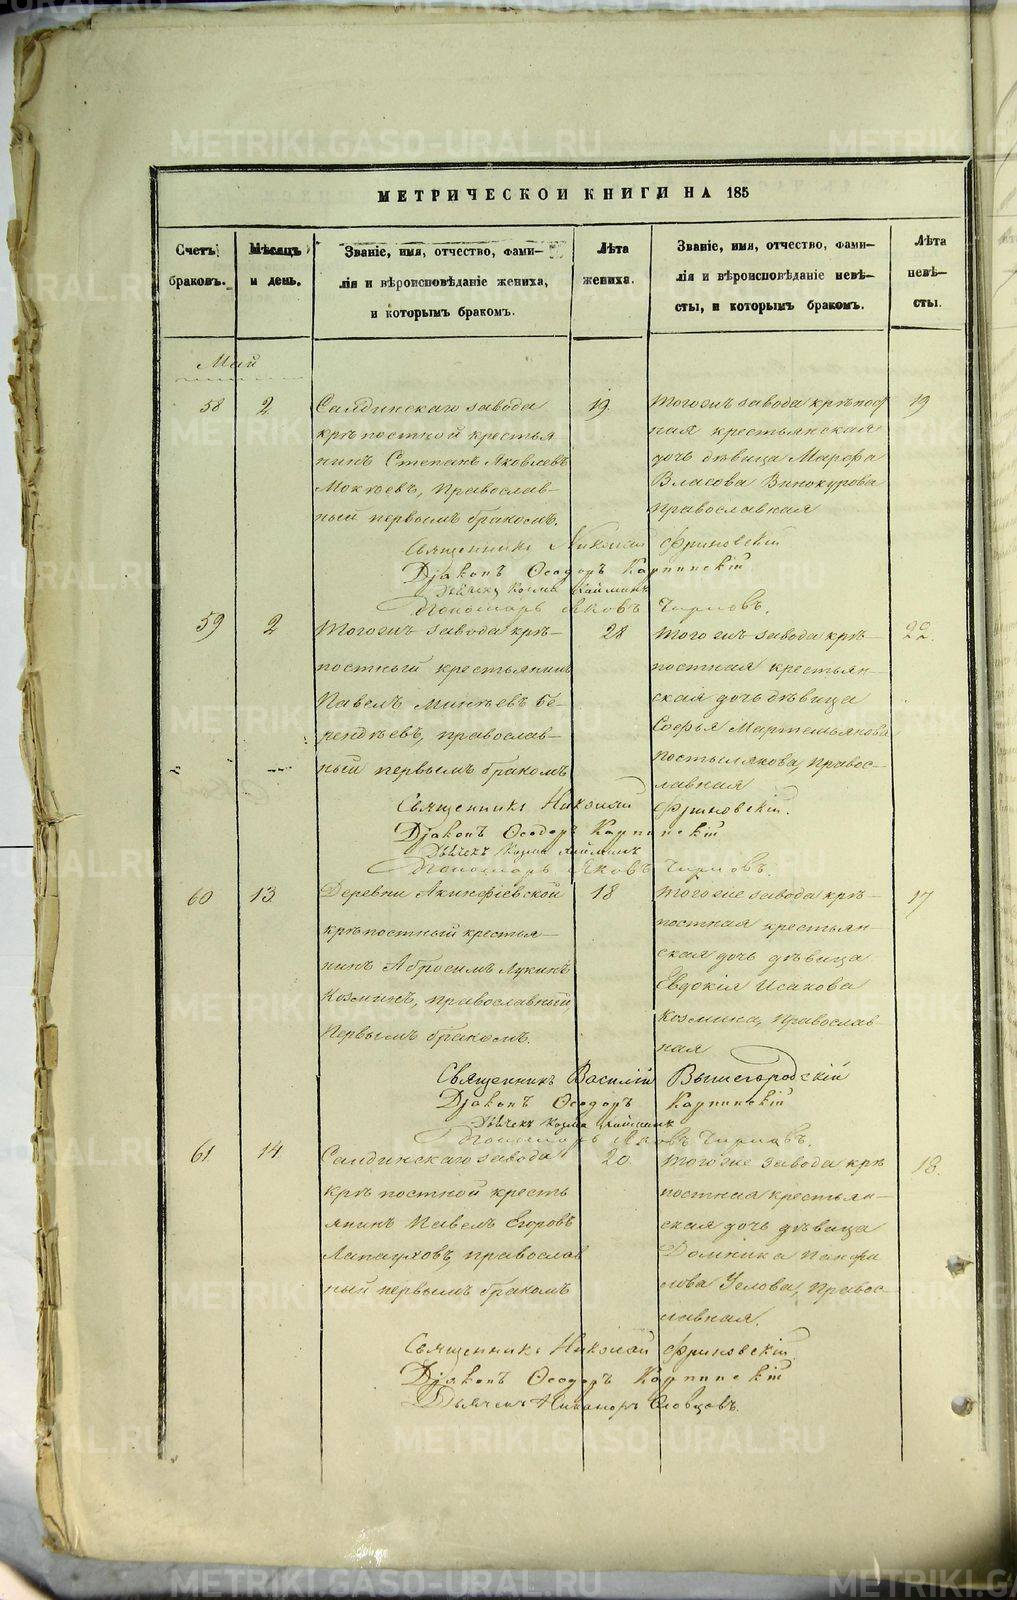 МЕТРИЧЕСКОЙ КНИГИ НА 185
Счетъ
браковъ.
Мѣсяцъ
и день.
Званіе, имя, отчество, фами-
лія и вѣроисповѣданіе жениха,
и которымъ бракомъ.
Лѣта
жениха.
Званіе, имя, отчество, фами-
лія и вѣроисповѣданіе невѣ-
сты, и которымъ бракомъ.
Лѣта
невѣ-
сты.
Май
58
2
Салдинскаго завода
крѣпостной крестья
нинъ Степанъ Яковлевъ
Мокѣевъ, Православ-
ный первымъ бракомъ.
19
Тогожъ завода крѣпос
ная крестьянская
дочь дѣвица Марфа
Власова Винокурова
Православная
19
Священникъ Николай Фриновскій
Діаконъ Ѳеодоръ Карпинскій
Дьячекъ Козма
Пономарь Яковъ
59
2
Тогожъ завода крѣ-
постный крестьянинъ
Павелъ Минѣевъ Бе-
рендѣевъ, православ-
ный первымъ бракомъ
28
Тогожъ завода крѣ-
постная крестьян-
ская дочь дѣвица
Софья Мартемьянова
Постылякова, Правос-
лавная
22.
Священникъ Николай Фриновскій.
Діаконъ Ѳеодоръ Карпинскій
Дьячекъ Козма
Пономарь Яковъ
60
13
Деревни Акинфіевской
крѣпостный крестья-
нинъ Абросимъ Лукинъ
Козминъ, православный
Первымъ бракомъ.
18
Тогоже завода крѣ-
постная крестьян-
ская дочь дѣвица
Евдокія Исакова
Козмина, Православ-
ная
17
Священникъ Василій Вышегородскій
Діаконъ Ѳеодоръ Карпинскій
Дьячекъ Козма
Пономарь Яковъ
61
14
Салдинскаго завода
крѣпостной кресть
янинъ Павелъ Егоровъ
Лапауховъ, православ
ный первымъ бракомъ
20
Тогоже завода крѣ
постная крестьян-
ская дочь дѣвица
Домника Панфи
лова Углова, Правос-
лавная.
18.
Священникъ Николай Фриновскій
Діаконъ Ѳеодоръ Карпинскій
Дьячекъ Никаноръ Словцовъ.
METRIKI.GASO-URAL.RU